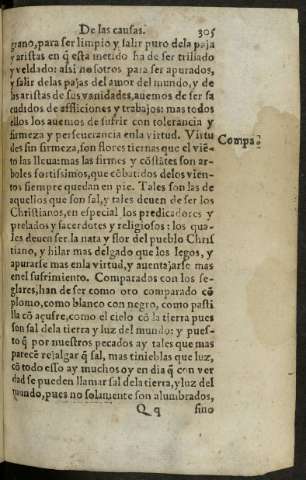 De las causas. 305
grano, para ser limpio y salir puro dela paja
y aristas en q̃ està metido ha de ser trillado
y veldado: assi nosotros para ser apurados,
y salir delas pajas del amor del mundo, y de
las aristas de sus vanidades, auemos de ser sa
cudidos de afflicciones y trabajos: mas todos
ellos los auemos de sufrir con tolerancia y
firmeza y perseuerancia enla virtud. Virtu
des sin firmeza, son flores tiernas que el viẽ-
to las lleua: mas las firmes y cõstãtes son ar-
boles fortissimos, que cõbatidos delos vien-
tos siempre quedan en pie. Tales son las de
aquellos que son sal, y tales deuen de ser los
Christianos, en especial los predicadores y
prelados y sacerdotes y religiosos: los qua-
les deuen ser la nata y flor del pueblo Chris
tiano, y hilar mas delgado que los legos, y
apurarse mas enla virtud, y auentajarse mas
enel sufrimiento. Comparados con los se-
glares, han de ser como oro comparado cõ
plomo, como blanco con negro, como pasti
lla cõ açufre, como el cielo cõ la tierra pues
son sal dela tierra y luz del mundo: y pues-
to q̃ por nuestros pecados ay tales que mas
parecẽ rejalgar q̃ sal, mas tinieblas que luz,
cõ todo esso ay muchos oy en dia q̃ con ver
dad se pueden llamar sal dela tierra, y luz del
mundo, pues no solamente son alumbrados,
Q q sino
Compa.